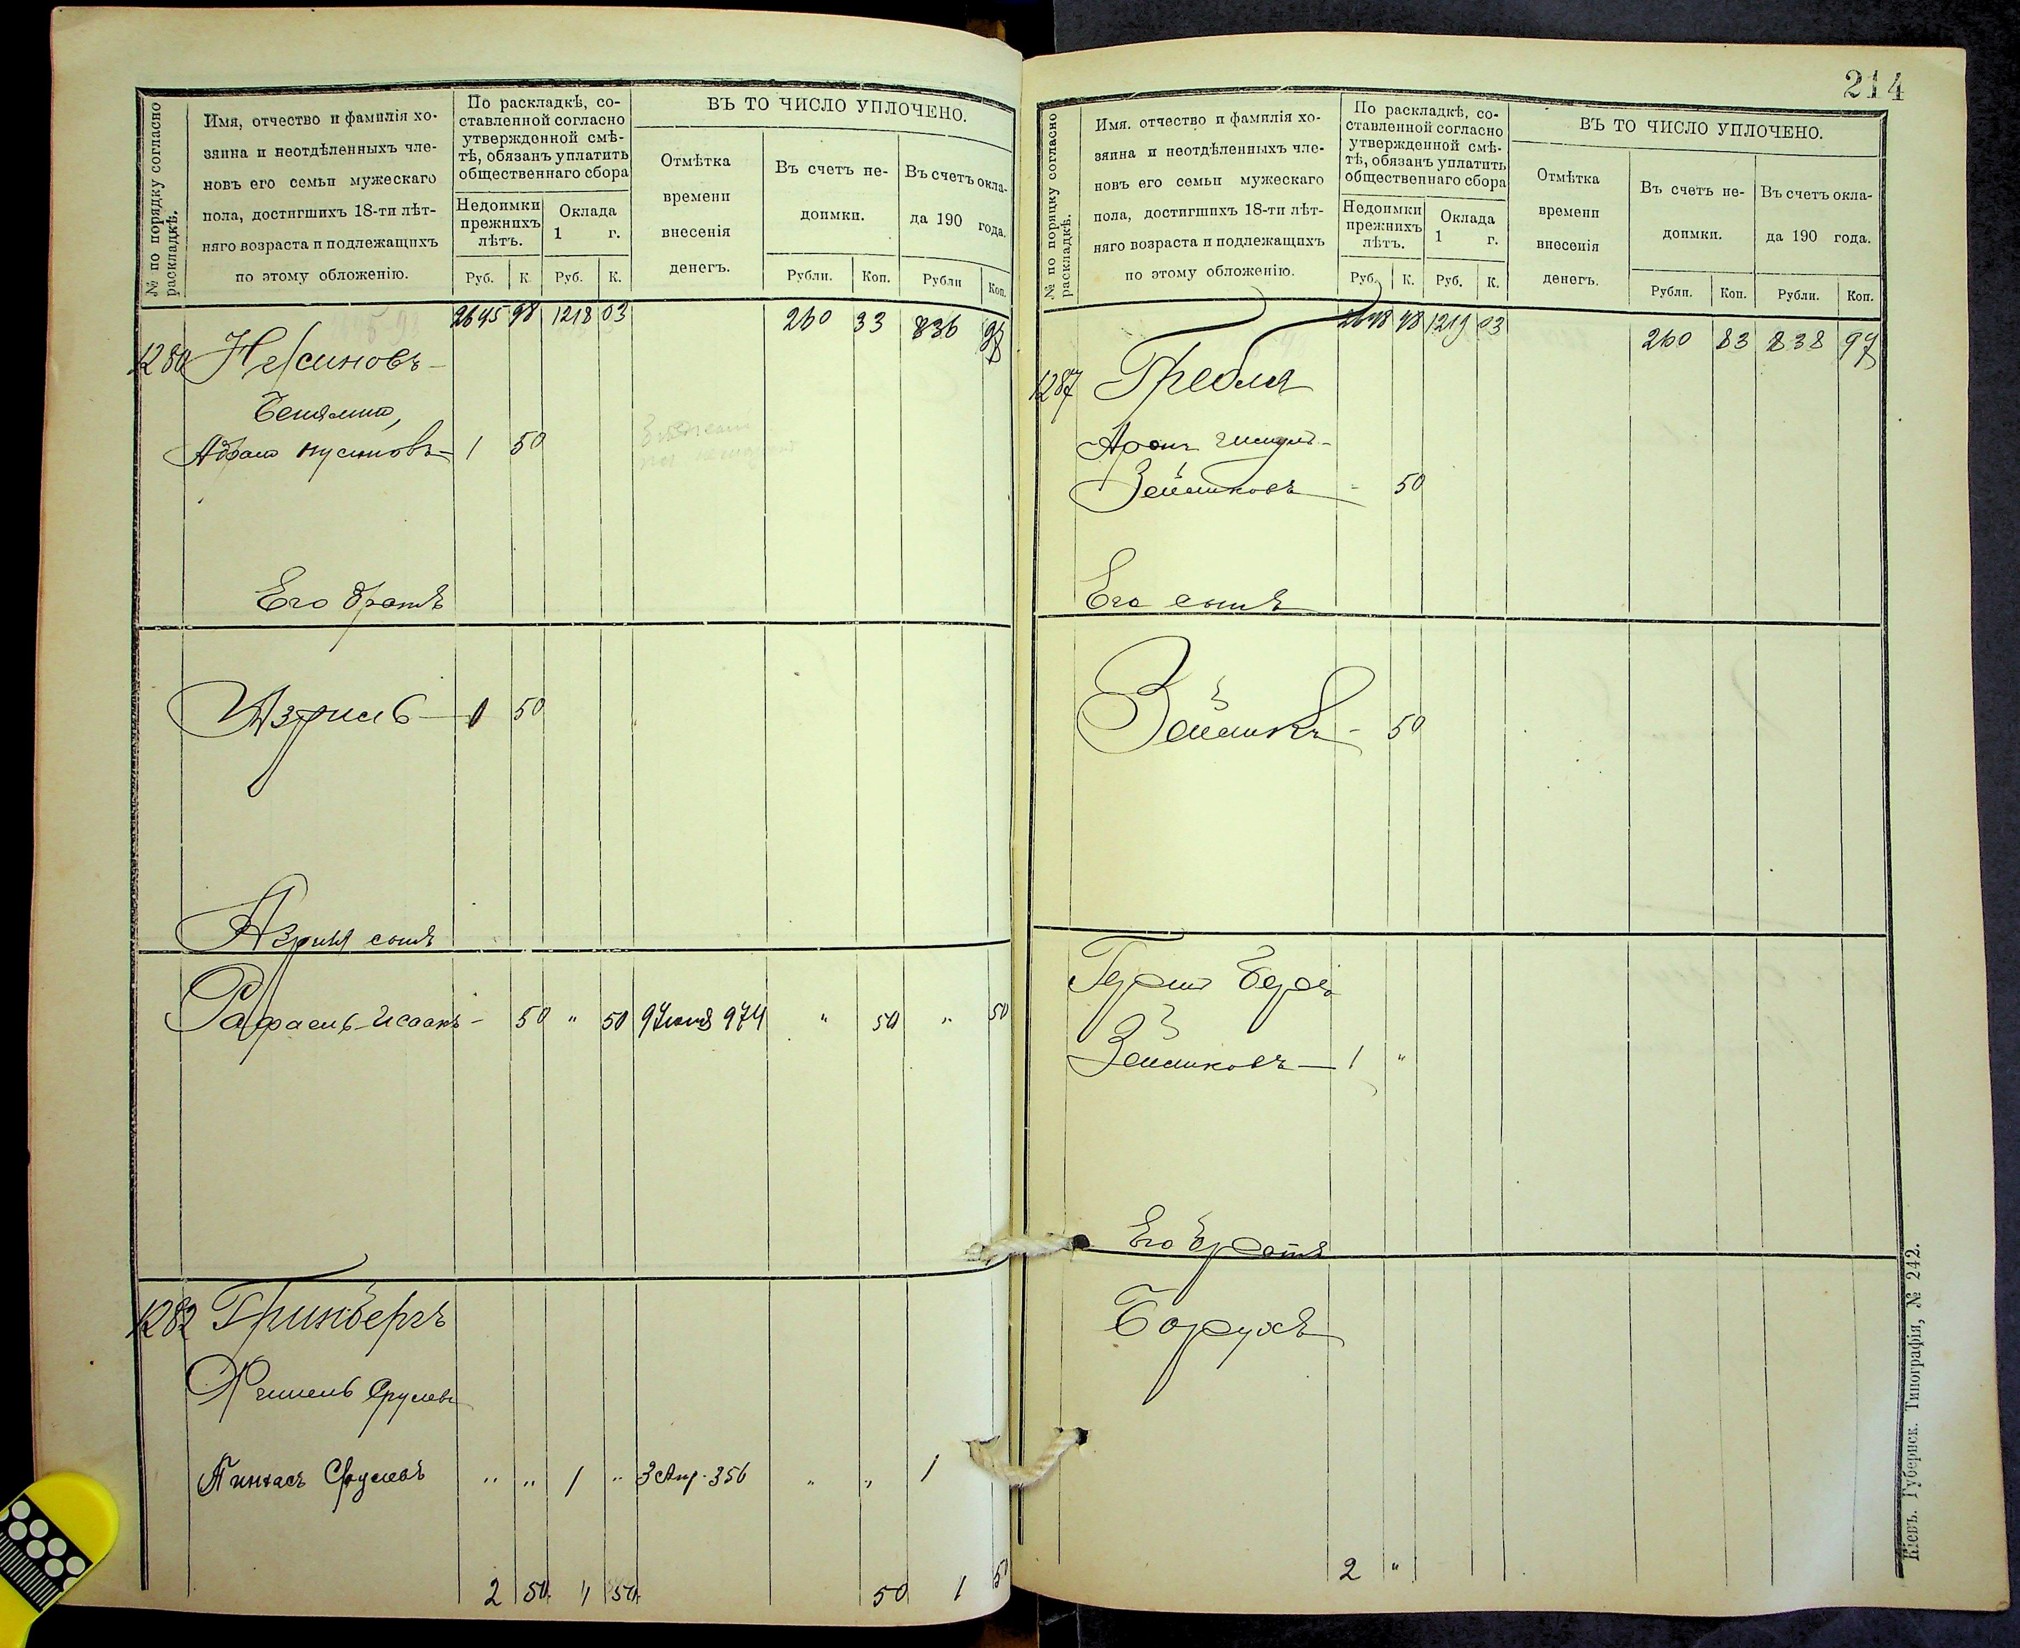 № по порядку согласно
раскладкѣ.
Имя, отчество и фамилія хо-
зяина и неотдѣленныхъ чле-
новъ его семьи мужескаго
пола, достигшихъ 18-ти лѣт-
няго возраста и подлежащихъ
по этому обложенію.
По раскладкѣ, со-
ставленной согласно
утвержденной смѣ-
тѣ, обязанъ уплатить
общественнаго сбора
Недоимки
прежнихъ
лѣтъ.
Оклада
1 г.
Руб. К. Руб. К.
ВЪ ТО ЧИСЛО УПЛОЧЕНО.
Отмѣтка
времени
внесенія
денегъ.
Въ счетъ не-
доимки.
Въ счетъ окла-
да 190 года.
Рубли. Коп. Рубли Коп.
2645 98 1218 03 260 33 836 97
1280
Его братъ
50
Азриля сынъ
Рафаель-Исаакъ - 50 " 50 9 Іюня 974 " 50 " 50
1282 Гринбергъ
Пинхасъ Срулевъ " " 1 " 3 Апр. 356 " " 1
2 50 1 50 50 1 50
214
№ по порядку согласно
раскладкѣ.
Имя. отчество и фамилія хо-
зяина и неотдѣленныхъ чле-
новъ его семьи мужескаго
пола, достигшихъ 18-ти лѣт-
няго возраста и подлежащихъ
по этому обложенію.
По раскладкѣ, со-
ставленной согласно
утвержденной смѣ-
тѣ, обязанъ уплатить
общественнаго сбора
Недоимки
прежнихъ
лѣтъ.
Оклада
1 г.
Руб. К. Руб. К.
ВЪ ТО ЧИСЛО УПЛОЧЕНО.
Отмѣтка
времени
внесенія
денегъ.
Въ счетъ не-
доимки.
Въ счетъ окла-
да 190 года.
Рубли. Коп. Рубли. Коп.
2648 48 1219 03 260 83 838 97
1287 Гребля
Аронъ
Зейликовъ - 50
Его сынъ
Зейликъ - 50
Зейликовъ - 1 "
Его братъ
Борухъ
2 "
Кіевъ. Губернск. Типографія, № 242.